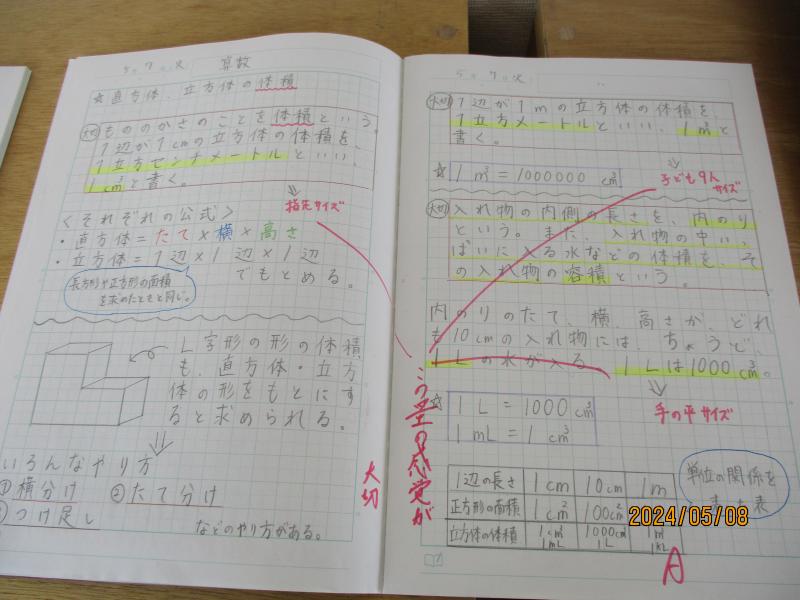 5.7.火 算数
☆直方体、立方体の体積
大切 もののかさのことを体積という。
1辺が1cmの立方体の体積を、
1立方センチメートルといい、
1cm³と書く。
指先サイズ
<それぞれの公式>
・直方体=たて×横×高さ
・立方体=1辺×1辺×1辺
でもとめる。
長方形や正方形の面積
を求めたときと同じ。
L字形の形の体積
も、直方体・立方
体の形をもとにす
ると求められる。
いろんなやり方
①横分け ②たて分け
つけ足し
などのやり方がある。
5.7.火
大切 1辺が1mの立方体の体積を、
1立方メートルといい、1m³と
書く。
☆ 1m³=1000000cm³
子ども9人
サイズ
大切 入れ物の内側の長さを、内のり
という。また、入れ物の中い、
ぱいに入る水などの体積を、そ
の入れ物の容積という。
内のりのたて、横、高さが、どれ
も10cmの入れ物には、ちょうど、
1Lの水が入る 1Lは1000cm³。
手の平サイズ
☆ 1L=1000cm³
1mL=1cm³
この量の感覚が
大切
1辺の長さ 1cm 10cm 1m
正方形の面積 1cm² 100cm² 1m²
立方体の体積 1cm³ 1000cm³ 1m³
1mL 1L 1kL
単位の関係を
表
A
2024/05/08